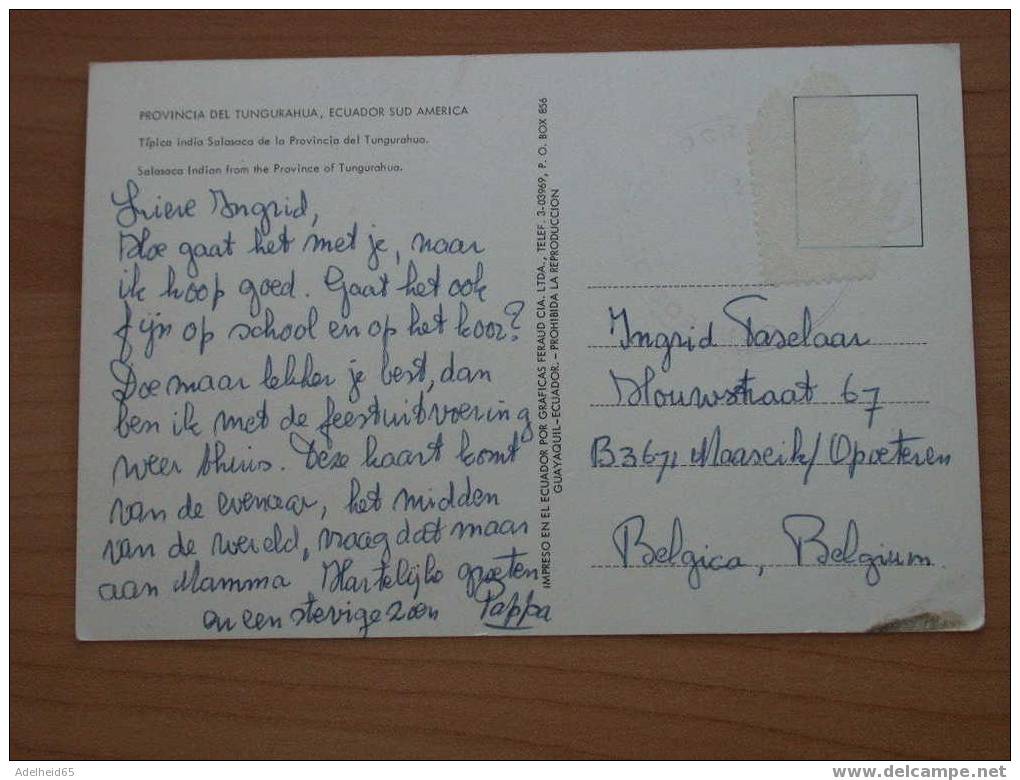 PROVINCIA DEL TUNGURAHUA, ECUADOR SUD AMERICA
Típica india Salasaca de la Provincia del Tungurahua.
Salasaca Indian from the Province of Tungurahua.
Lieve Ingrid,
Hoe gaat het met je, naar
ik hoop goed. Gaat het ook
fijn op school en op het koor?
Doe maar lekker je best, dan
ben ik met de feestuitvoering
weer thuis. Deze kaart komt
van de evenaar, het midden
van de wereld, vraag dat maar
aan Mamma Hartelijke groeten
en een stevige zoen Pappa
IMPRESO EN EL ECUADOR POR GRAFICAS FERAUD CIA. LTDA., TELEF. 3-03969, P. O. BOX 856
GUAYAQUIL-ECUADOR. - PROHIBIDA LA REPRODUCCION
Ingrid Taselaar
Houwstraat 67
B3671 Maaseik/Opoeteren
Belgica, Belgium
Adelheid65
www.delcampe.net